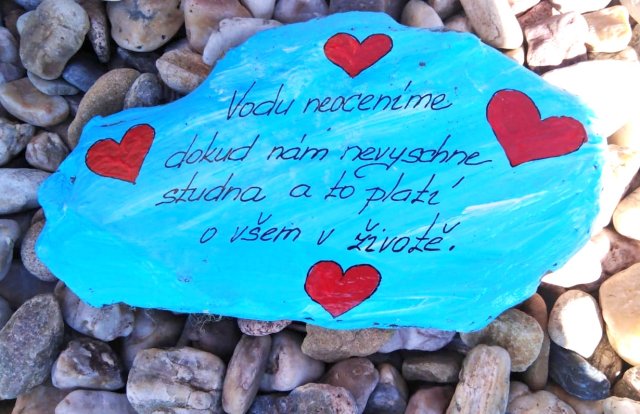 Vodu neoceníme
dokud nám nevyschne
studna a to platí
o všem v životě.